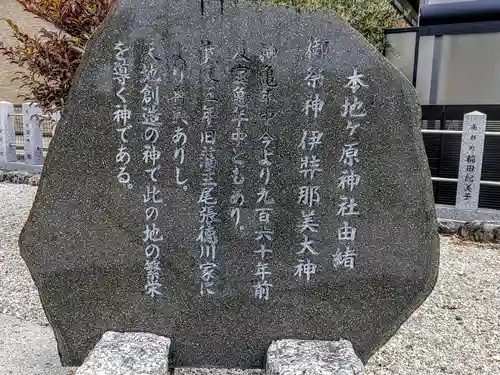 本地ヶ原神社由緒
御祭神 伊弉那美大神
神亀年中今より九百六十年前
又宝亀年中ともあり。
年旧藩主尾張徳川家に
より再興ありし。
天地創造の神で此の地の繁栄
を導く神である。
町 稲田 美子